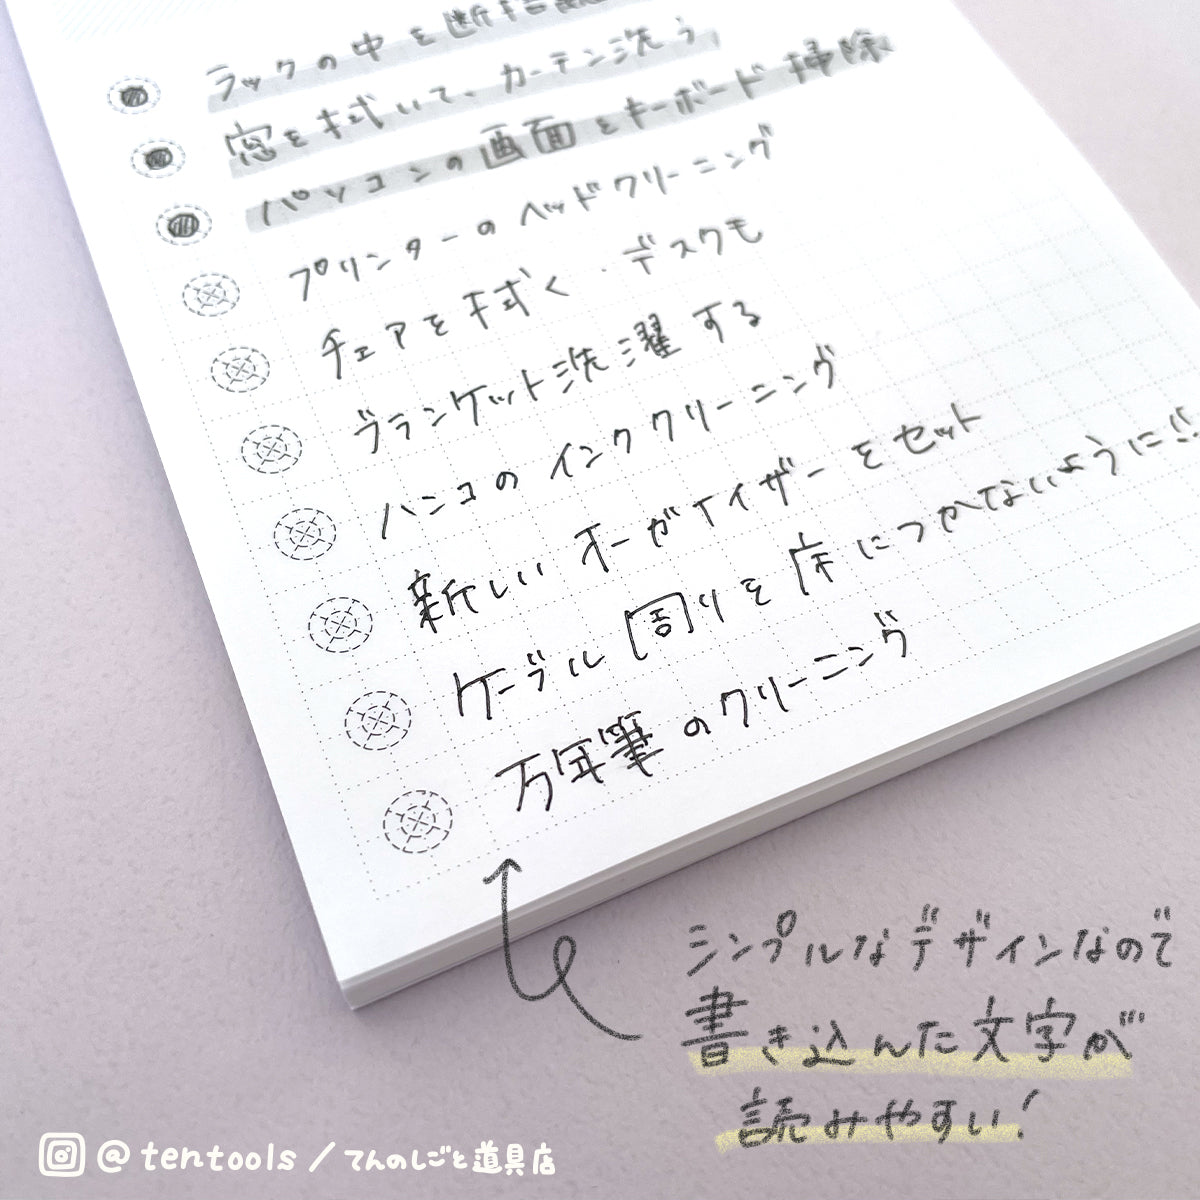 ラックの中を断捨離
窓を拭いて、カーテン洗う
パソコンの画面とキーボード掃除
プリンターのヘッドクリーニング
チェアを拭く.デスクも
ブランケット洗濯する
ハンコのインククリーニング
新しいオーガナイザーをセット
ケーブル周りを床につかないように!!
万年筆のクリーニング
シンプルなデザインなので
書き込んだ文字が
読みやすい!
@tentools/てんのしごと道具店